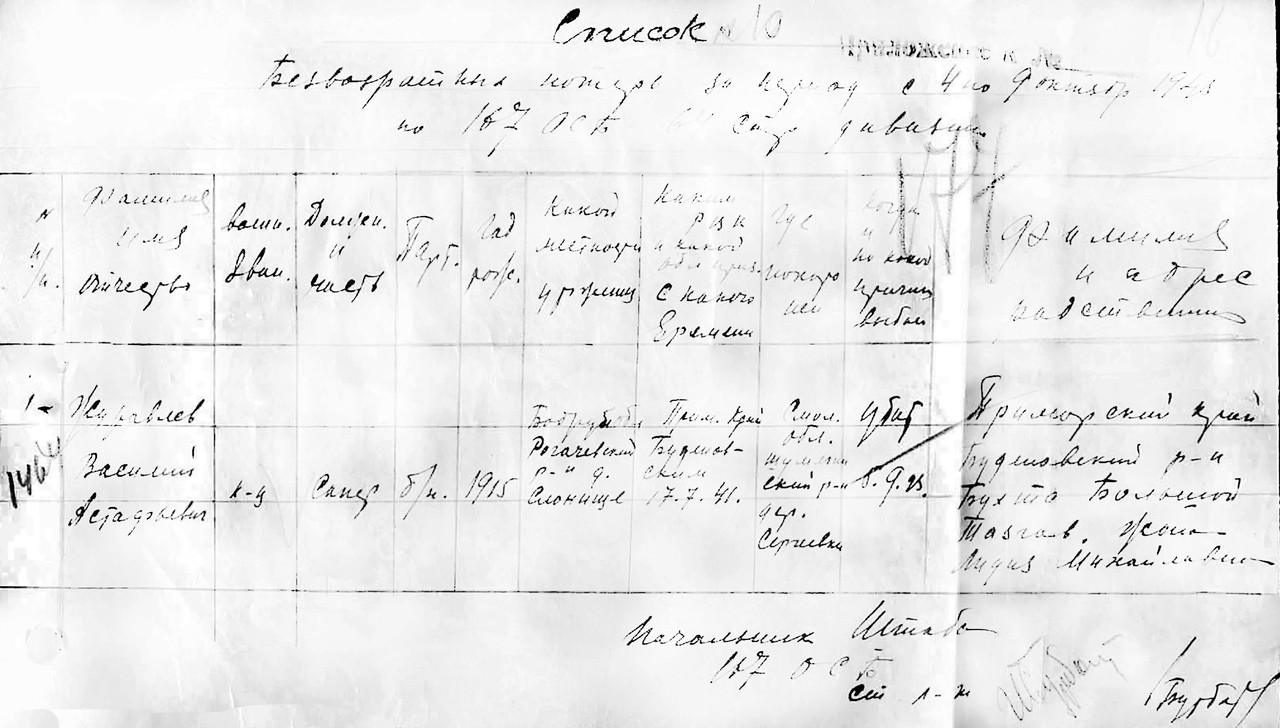 Список № 10
Безвозвратных потерь за период с 4 по 9 октябр 194
по 187 ОСБ 64 стр дивизии
174
№
п/п.
Фамилия
имя
отчество
воин.
зван.
Должн.
и
часть
Парт.
Год
рожд.
Какой
местности
уроженец
Каким
РВК
и какой
обл. приз.
с какого
времени
Где
похоро
нен
Когда
и
по какой
причине
выбыл
Фамилия
и адрес
родственник
1-
1464
Журавлев
Василий
Астафьевич
к-ц
Сапер
б/п.
1915
Рогачевский
р-н д.
Слонище
Прим. Край
Буденов-
ским
17.7.41.
Смол.
обл.
ский р-н
дер.
Сергеевка
убит
8.9.43.
Приморский край
Буденовский р-н
Бухта Большой
Тазгав. Жена
Лидия Михайловна
Начальник Штаба
187 ОСБ
ст л-т